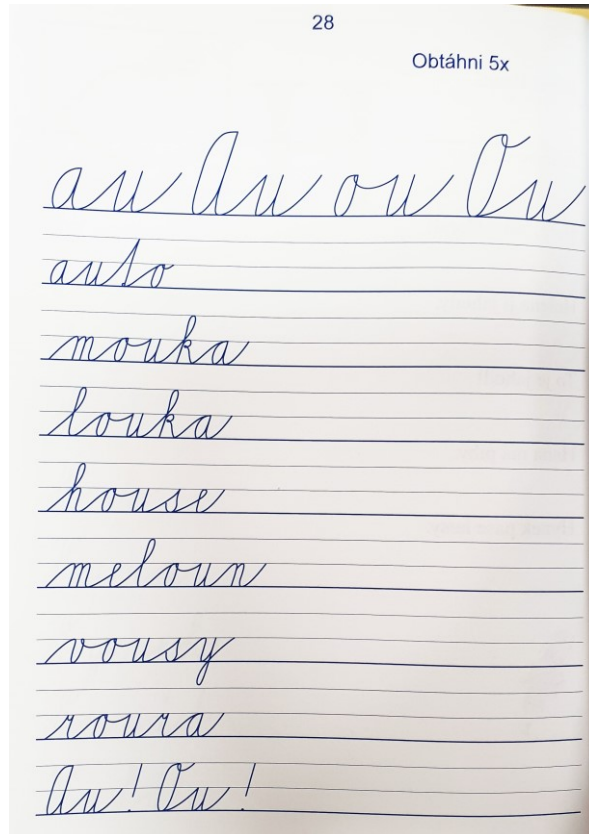 28
Obtáhni 5x
au Au ou Ou
auto
mouka
louka
house
meloun
vousy
roura
Au! Ou!